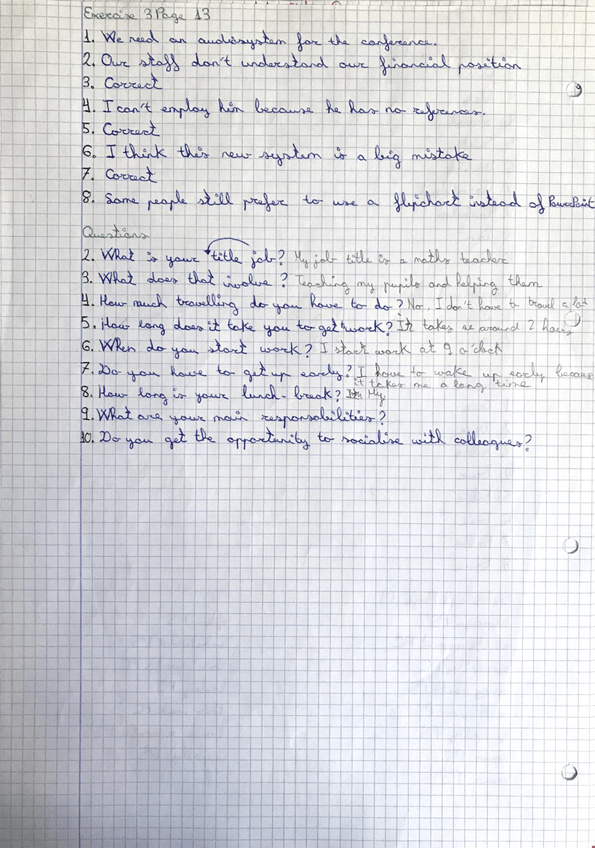 Exercise 3 Page 13
1. We need an audiosystem for the conference.
2. Our staff don't understand our financial position
3. Correct
4. I can't employ him because he has no references.
5. Correct
6. I think this new system is a big mistake
7. Correct
8. Some people still prefer to use a flipchart instead of PowerPoint
Questions
2. What is your title job? My job title is a maths teacher
3. What does that involve? Teaching my pupils and helping them
4. How much travelling do you have to do? No, I don't have to travel a lot
5. How long does it take you to get work? It takes me around 2 hours
6. When do you start work? I start work at 9 o'clock
7. Do you have to get up early? I have to wake up early because
it takes me a long time
8. How long is your lunch-break? My
9. What are your main responsabilities?
10. Do you get the opportunity to socialise with colleagues?